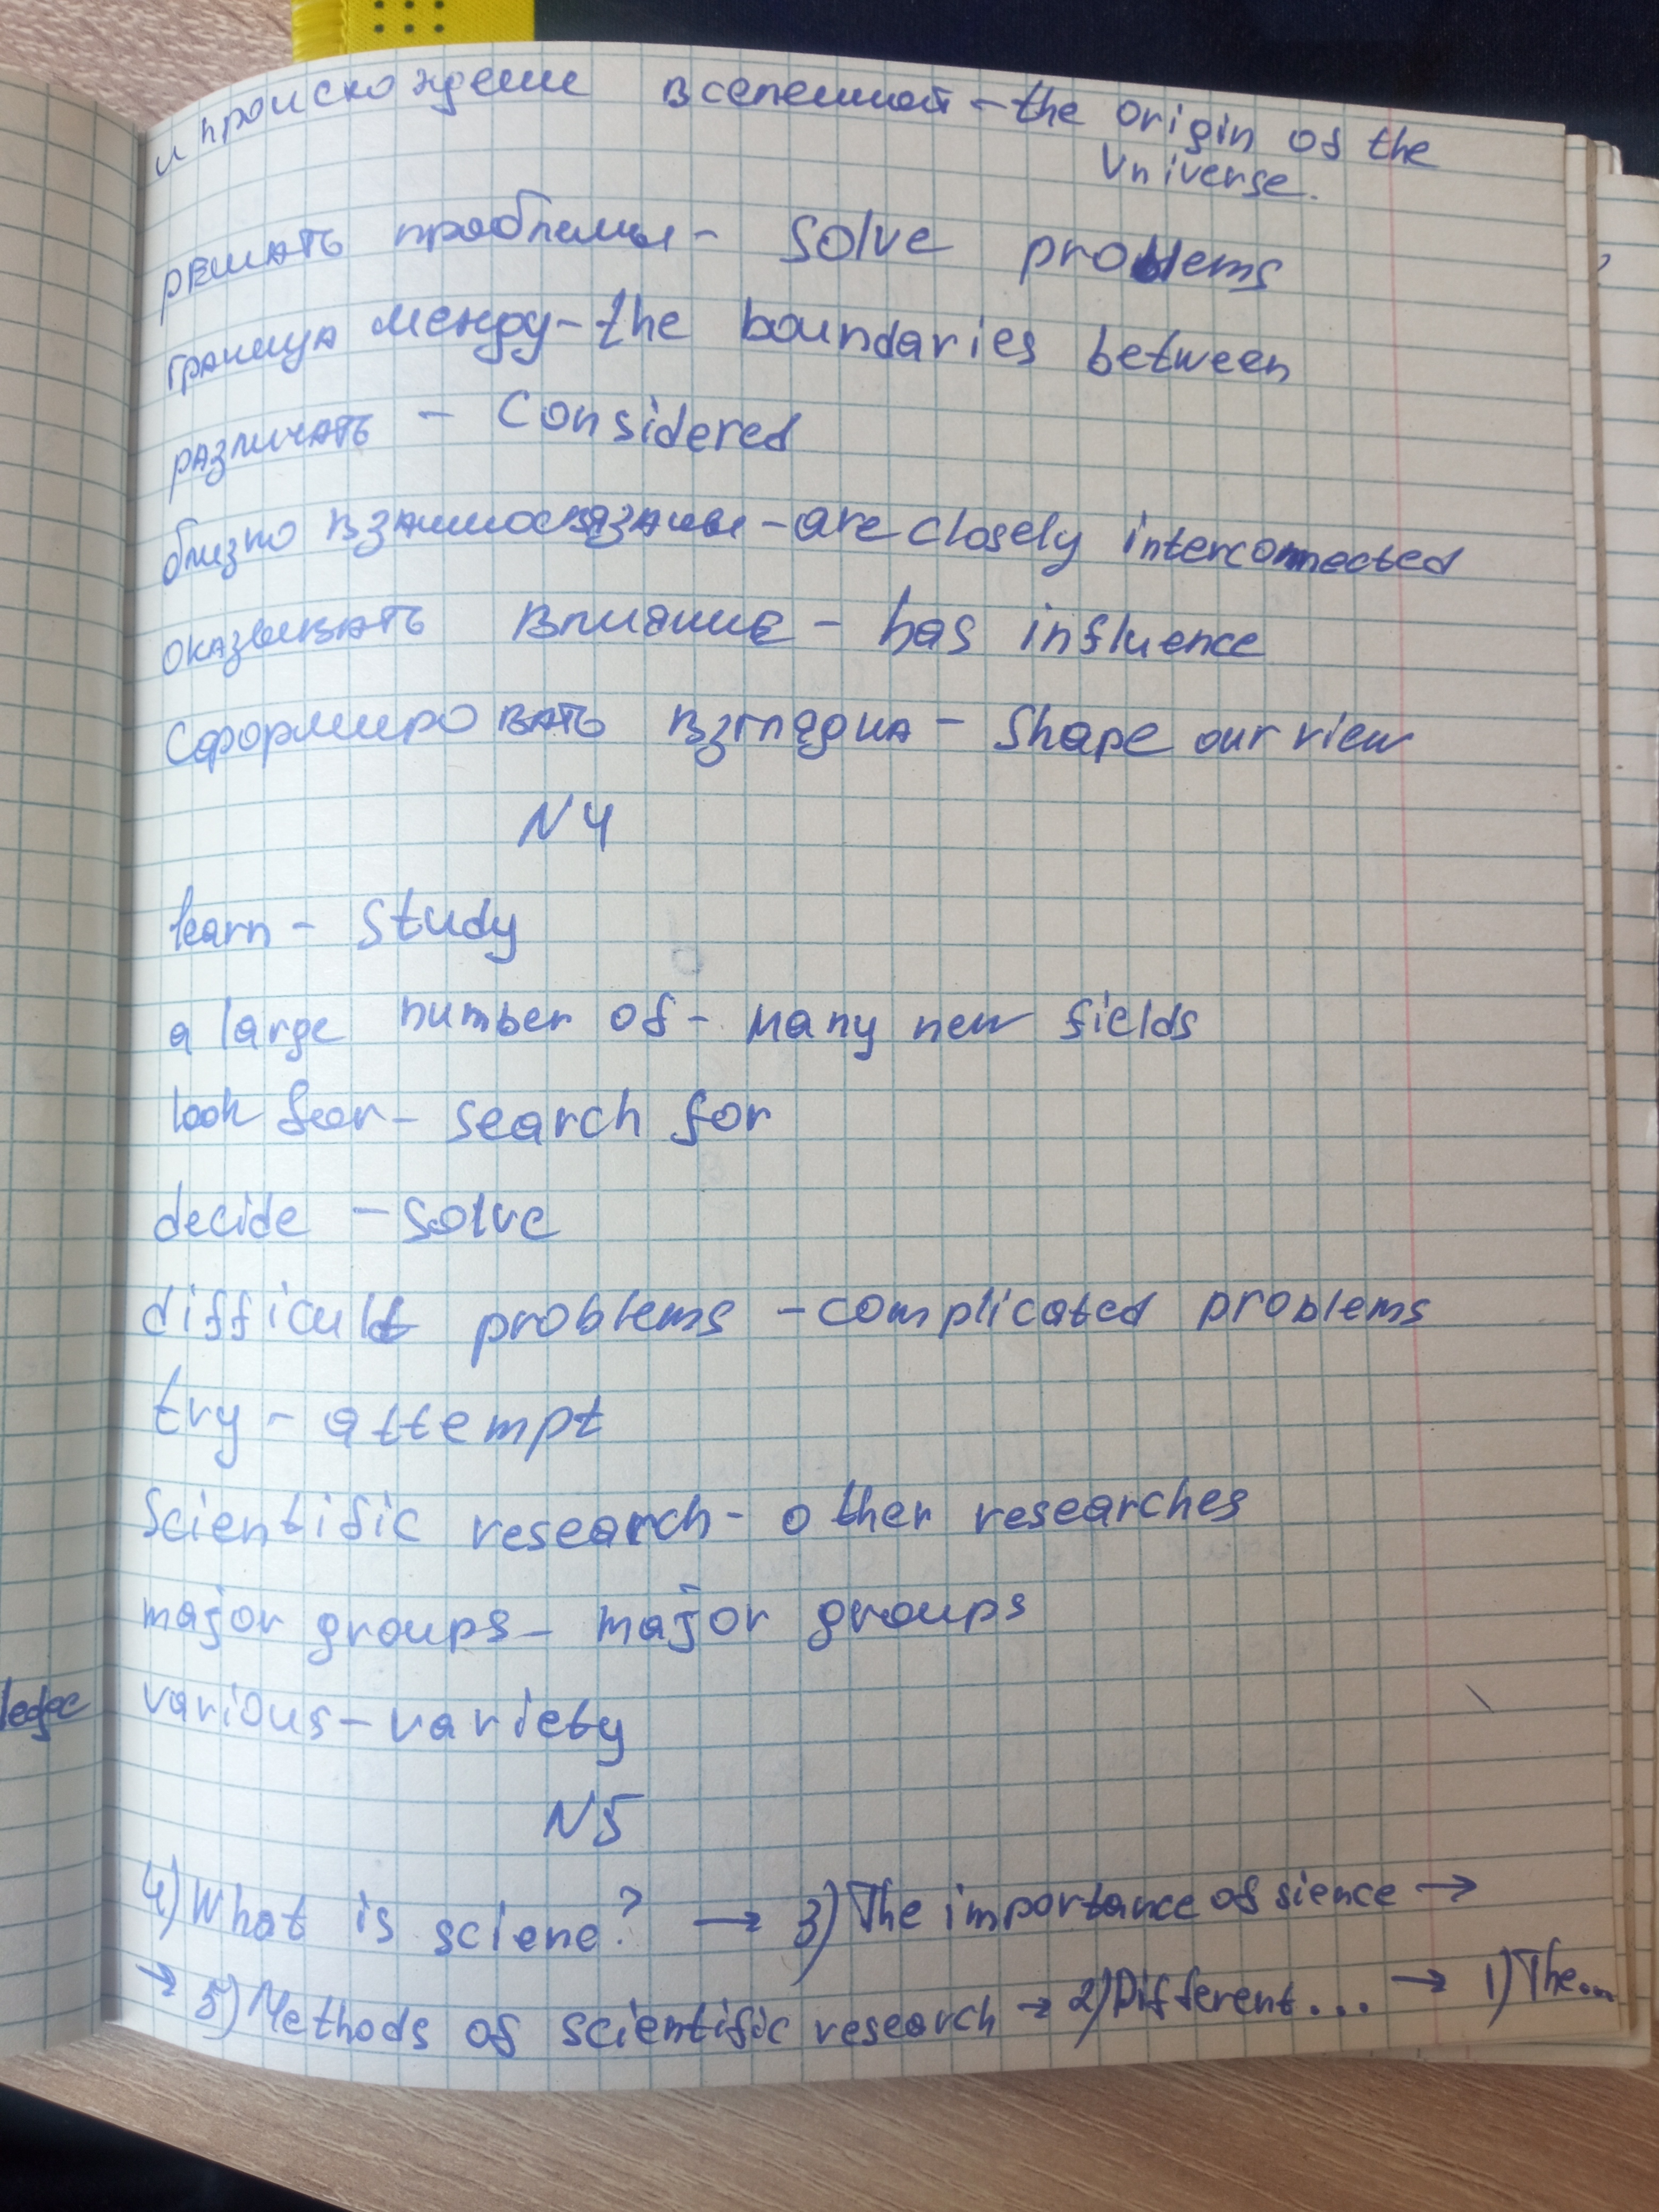 и происхождении вселенной - the origin of the
Universe.
решать проблемы - solve problems
граница между - the boundaries between
различать - considered
близко взаимосвязаны - are closely interconnected
оказывать влияние - has influence
Сформировать взгляд на - shape our view
N4
learn - study
a large number of - many new fields
look for - search for
decide - solve
difficult problems - complicated problems
try - attempt
Scientific research - other researches
major groups - major groups
ledge various - variety
N5
4) What is sciene? → 3) The importance of sience →
→ 5) Methods of scientific research → 2) Different... → 1) The...